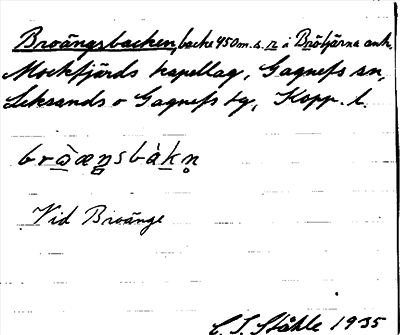 Broängsbacken, backe 450 m. s. r i Brötjärna ank.,
Mockfjärds kapellag, Gagnefs sn,
Leksands o Gagnefs tg, Kopp. l.
Vid Broänge
C. I. Ståhle 1935